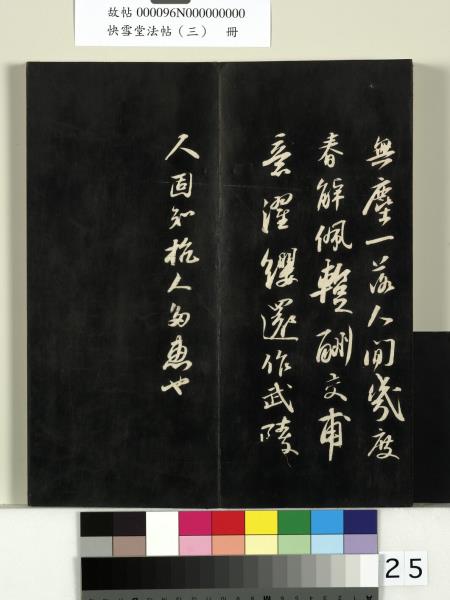 故帖000096N000000000
快雪堂法帖（三） 冊
無塵一落人間幾度
春解佩蹔酬交甫
意濯纓還作武陵
人固知杭人多惠也
25